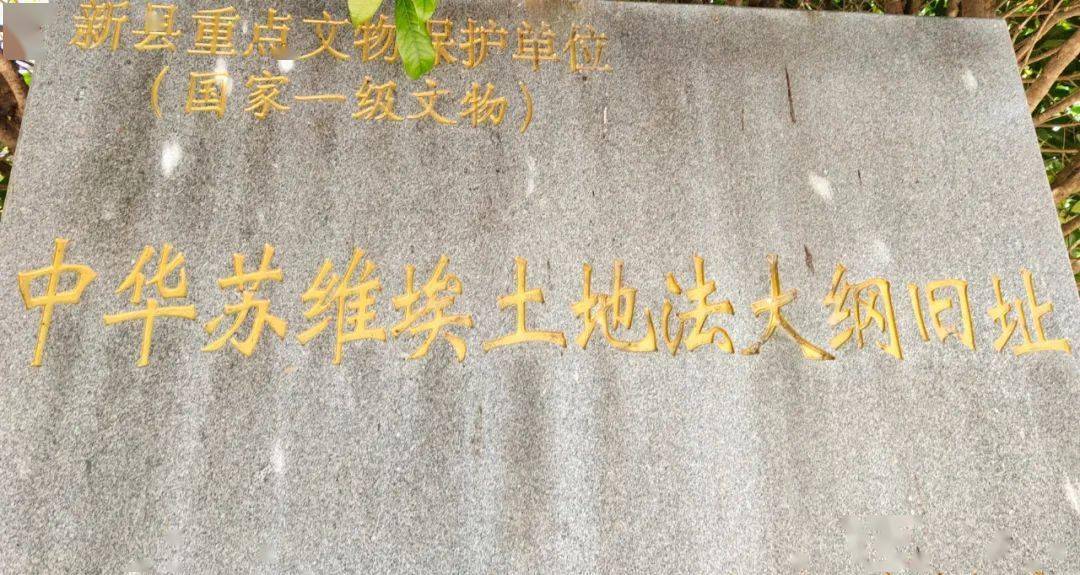 新县重点文物保护单位
(国家一级文物)
中华苏维埃土地法大纲旧址